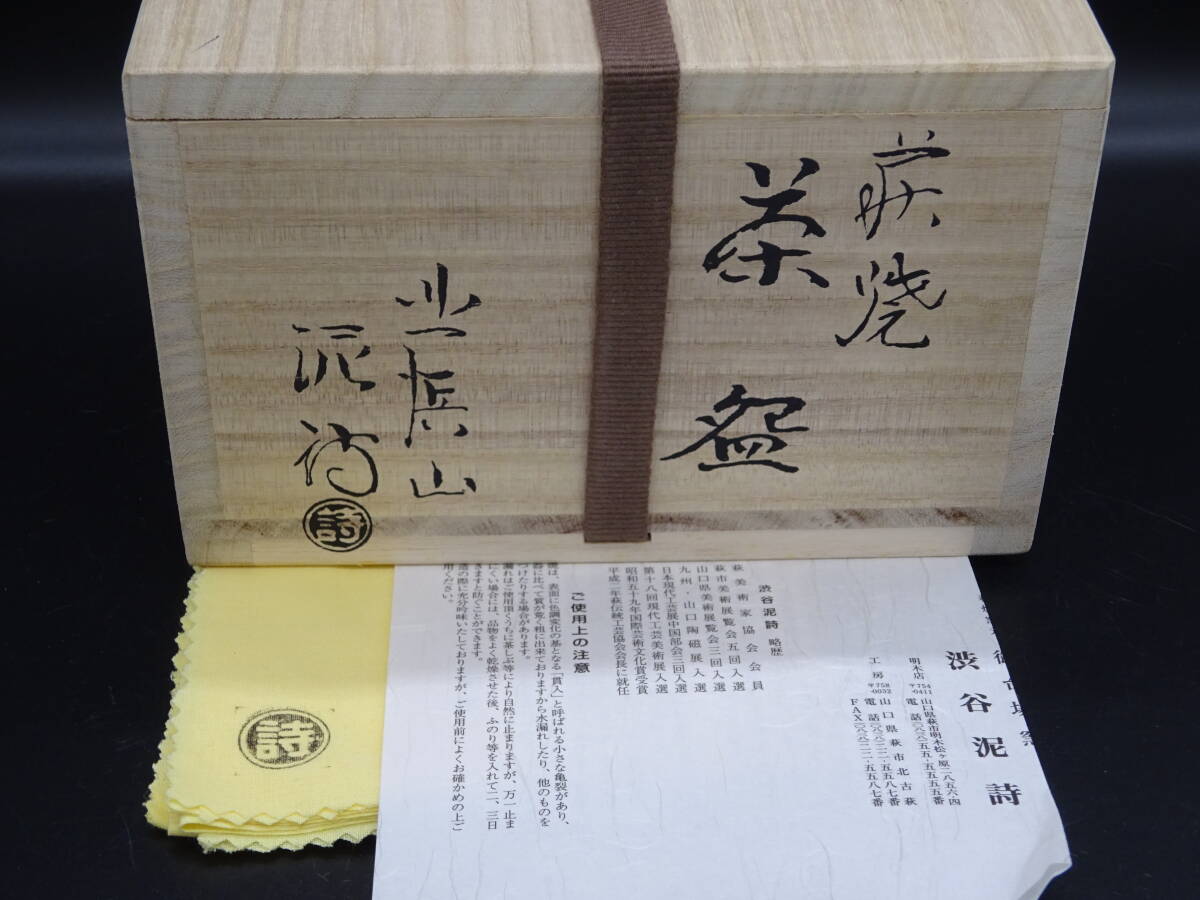 萩焼
茶盌
泥詩
詩
詩
渋谷泥詩
明木店 〒754-0411 山口県萩市明木松ヶ原二八五六四
工房 〒758-0032 山口県萩市北古萩
渋谷泥詩 略歴
萩美術家協会会員
萩市美術展覧会五回入選
山口県美術展覧会三回入選
九州・山口陶磁展入選
日本現代工芸展中国部会三回入選
第十八回現代工芸美術展入選
昭和五十九年国際芸術文化賞受賞
平成二年萩伝統工芸協会会長に就任
ご使用上の注意
は、表面に色調変化の基となる「貫入」と呼ばれる小さな亀裂があり、
器に比べて質が荒く粗に出来ておりますから水漏れしたり、他のものを
つけたりする場合があります。
漏れはご使用頂くうちに茶しぶ等により自然に止まりますが、万一止ま
にくい場合には、品物をよく乾燥させた後、ふのり等を入れて二、三日
きますと防ぐことができます。
造の際に充分吟味いたしておりますが、ご使用前によくお確かめの上ご
用ください。